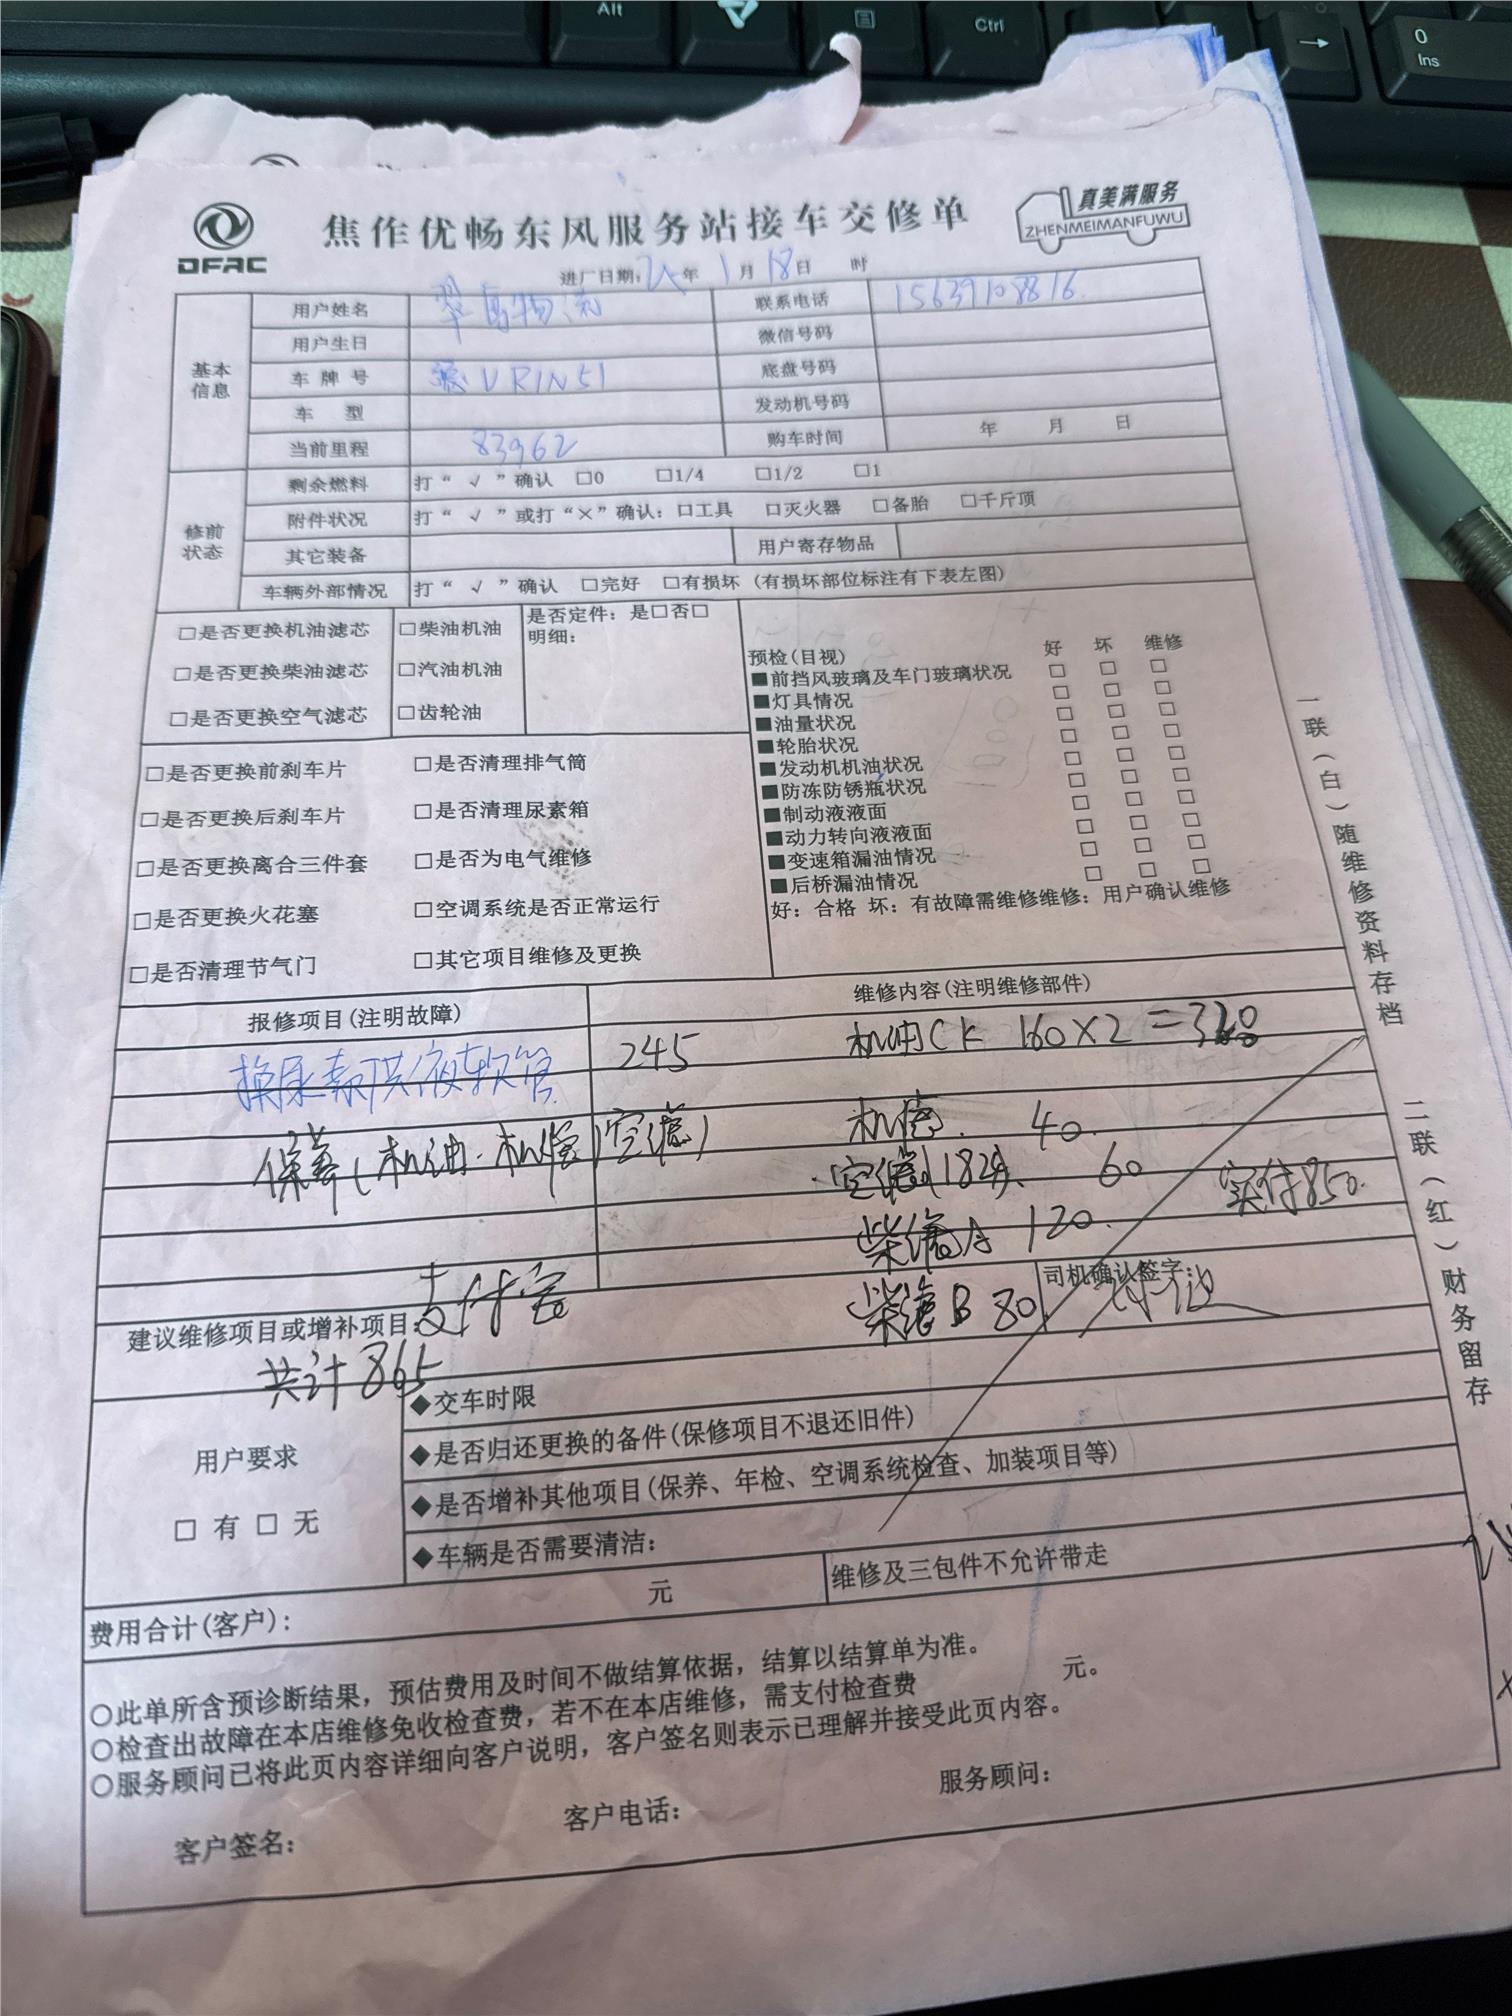 Alt
Ctrl
0
Ins
DFAC
焦作优畅东风服务站接车交修单
真美满服务
ZHENMEIMANFUWU
进厂日期: 年 1月 18日 时
基本信息
用户姓名 物流 联系电话 15639108816
用户生日 微信号码
车牌号 豫VR1N51 底盘号码
车 型 发动机号码
当前里程 83962 购车时间 年 月 日
修前状态
剩余燃料 打“ √ ”确认 □0 □1/4 □1/2 □1
附件状况 打“ √ ”或打“×”确认: □工具 □灭火器 □备胎 □千斤顶
其它装备 用户寄存物品
车辆外部情况 打“ √ ”确认 □完好 □有损坏 (有损坏部位标注有下表左图)
□是否更换机油滤芯 □柴油机油 是否定件: 是□否□
明细:
□是否更换柴油滤芯 □汽油机油
□是否更换空气滤芯 □齿轮油
□是否更换前刹车片 □是否清理排气筒
□是否更换后刹车片 □是否清理尿素箱
□是否更换离合三件套 □是否为电气维修
□是否更换火花塞 □空调系统是否正常运行
□是否清理节气门 □其它项目维修及更换
预检(目视) 好 坏 维修
■前挡风玻璃及车门玻璃状况 □ □ □
■灯具情况 □ □ □
■油量状况 □ □ □
■轮胎状况 □ □ □
■发动机机油状况 □ □ □
■防冻防锈瓶状况 □ □ □
■制动液液面 □ □ □
■动力转向液液面 □ □ □
■变速箱漏油情况 □ □ □
■后桥漏油情况 □ □ □
好: 合格 坏: 有故障需维修维修: 用户确认维修
报修项目(注明故障) 维修内容(注明维修部件)
换尿素供液软管 245 机油CK 160×2=320
保养(机油.机滤)空滤) 机滤. 40.
空滤 182 60 实付850.
柴滤A 120.
建议维修项目或增补项目: 支付宝 柴滤B 80 司机确认签字:
共计865
用户要求
□ 有 □ 无
◆交车时限
◆是否归还更换的备件(保修项目不退还旧件)
◆是否增补其他项目(保养、年检、空调系统检查、加装项目等)
◆车辆是否需要清洁:
费用合计(客户): 元 维修及三包件不允许带走
○此单所含预诊断结果，预估费用及时间不做结算依据，结算以结算单为准。
○检查出故障在本店维修免收检查费，若不在本店维修，需支付检查费 元。
○服务顾问已将此页内容详细向客户说明，客户签名则表示已理解并接受此页内容。
客户签名: 客户电话: 服务顾问:
一联(白)随维修资料存档
二联(红)财务留存